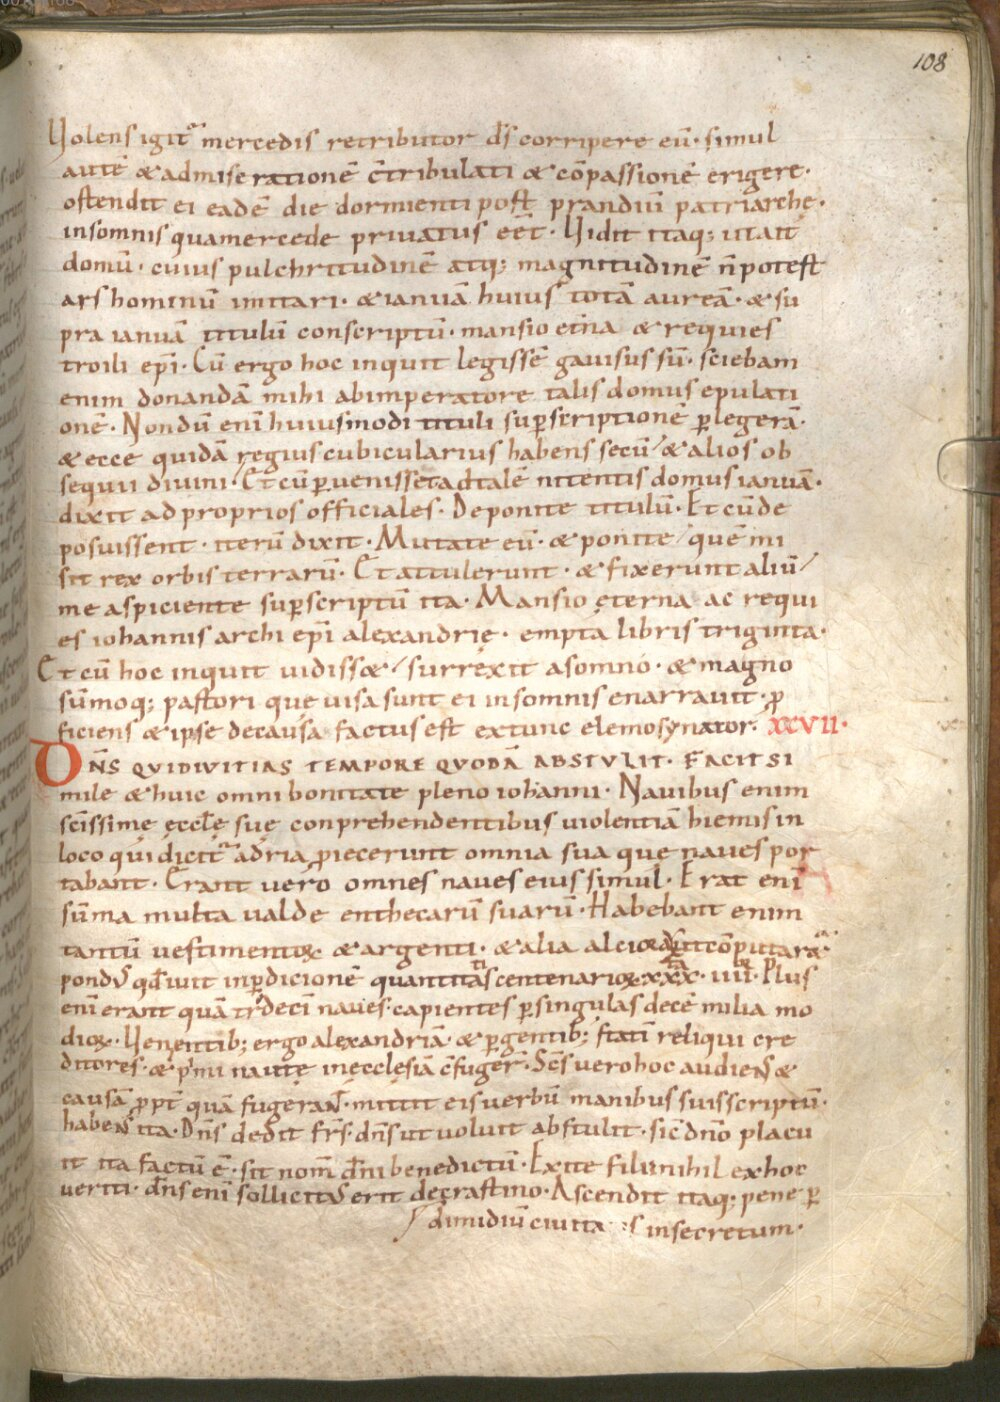 108
Volens igit᷑ mercedis retributor d̄s corripere eū· simul
autē & admiserationē c̄tribulati & cōpassionē erigere·
ostendit ei eadē die dormienti post prandiū patriarchę·
insomnis qua mercede privatus eēt· Vidit itaq; utait
domū· cuius pulchritudinē atq; magnitudinē n̄ potest
ars hominū imitari· & ianuā huius totā aureā· & su
pra ianuā titulū conscriptū· mansio et̄na & requies
troili ep̄i· Cū ergo hoc inquit legissē gavisus sū· sciebam
enim donandā mihi ab imperatore talis domus epulati
onē· Nondū enī huiusmodi tituli sup̱scriptionē p̱legerā·
& ecce quidā regius cubicularius habens secū & alios ob
sequii divini· Et cū p̱venisset ad talē nitentis domus ianuā·
dixit ad proprios officiales· Deponite titulū· Et cū de
posuissent· iterū dixit· Mutate eū· & ponite quē mi
sit rex orbis terrarū· Et attulerunt· & fixerunt aliū
me aspiciente sup̱scriptū ita· Mansio ęterna ac requi
es iohannis archiep̄i alexandrię· empta libris triginta·
Et cū hoc inquit vidiss& surrexit a somno· & magno
sūmoq; pastori que visa sunt ei in somnis enarravit· ꝓ
ficiens & ipse de causa factus est ex tunc elemosynator· XXVII·
DN̄S QVI DIVITIAS TEMPORE QVODĀ ABSTVLIT· FACIT SI
mile & huic omni bonitate pleno iohanni· Navibus enim
scīssimę ęccl̄e suę conprehendentibus violentiā hiemis in
loco qui dicit᷑ adria ꝓiecerunt omnia sua que naves por
tabant· Erant vero omnes naves eius simul· Erat enī
sūma multa valde enthecarū suarū· Habebant enim
tantū vestimentoꝝ & argenti· & alia
pond᷒ qd̄ ivit in p̱dicionē quantitas centenarioꝝ Plus
enī erant quā tredecī naves· capientes p̱ singulas decē milia mo
dioꝝ· Venientib; ergo alexandriā· & p̱gentib; statī reliqui cre
ditores· & p̱mi nautę in ecclesiā c̄fuger̄· Sc̄s vero hoc audiens &
causā ꝓpt̄ quā fugerant· mittit eis verbū manibus suis scriptū·
habens ita· Dn̄s dedit fr̄s· dn̄s ut voluit abstulit· sic̄ dn̄o placu
it ita factū ē· sit nom̄ dn̄i benedictū· Exite filii nihil ex hoc
veriti· dn̄s enī sollicit᷒ erit de crastino· Ascendit itaq; pene p̱
dimidiū civitatis in secretum·